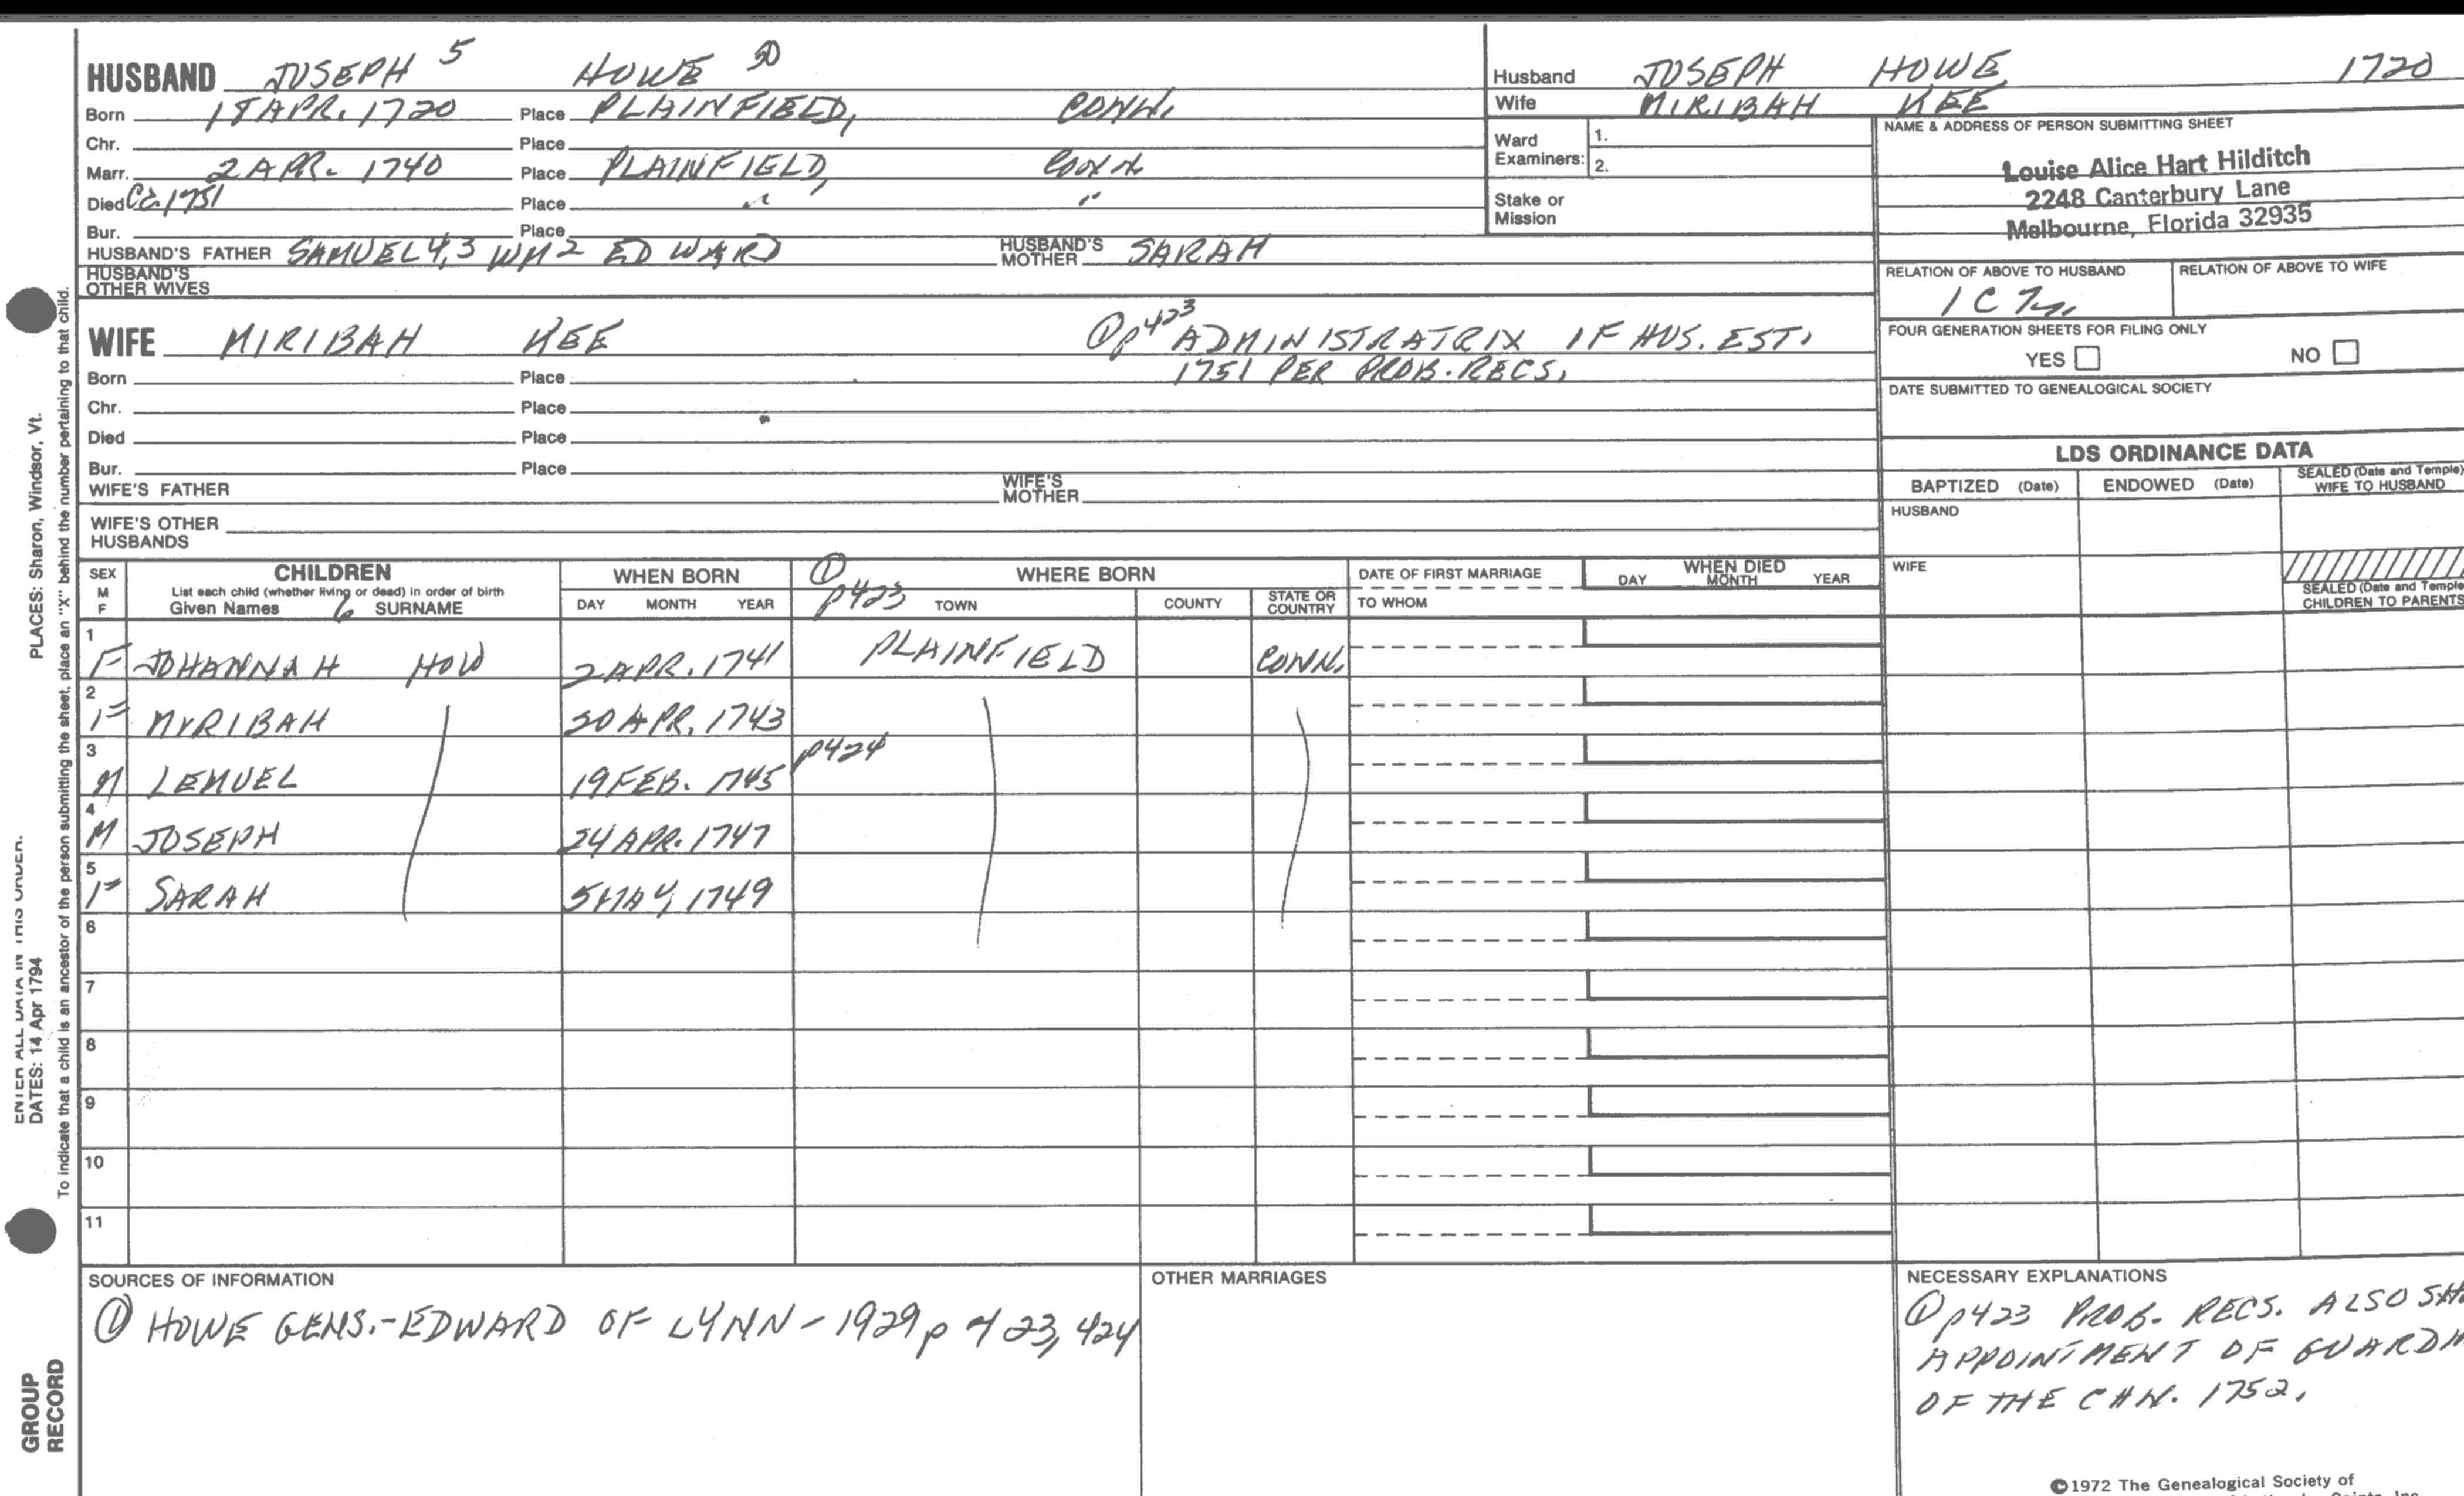 HUSBAND JOSEPH 5 HOWE
Born 18 APR. 1720 Place PLAINFIELD, CONN.
Chr. Place
Marr. 2 APR. 1740 Place PLAINFIELD, CONN
Died Ca 1751 Place " "
Bur. Place
HUSBAND'S FATHER SAMUEL 4, 3 WM 2 EDWARD HUSBAND'S MOTHER SARAH
HUSBAND'S OTHER WIVES
Husband JOSEPH HOWE 1720
Wife MIRIBAH KEE
Ward Examiners: 1.
2.
Stake or Mission
NAME & ADDRESS OF PERSON SUBMITTING SHEET
Louise Alice Hart Hilditch
2248 Canterbury Lane
Melbourne, Florida 32935
RELATION OF ABOVE TO HUSBAND RELATION OF ABOVE TO WIFE
1 C 7
FOUR GENERATION SHEETS FOR FILING ONLY
YES NO
DATE SUBMITTED TO GENEALOGICAL SOCIETY
WIFE MIRIBAH KEE ① p423 ADMINISTRATRIX IF HUS. EST.
1751 PER PROB. RECS.
Born Place
Chr. Place
Died Place
Bur. Place
WIFE'S FATHER WIFE'S MOTHER
WIFE'S OTHER HUSBANDS
LDS ORDINANCE DATA
BAPTIZED (Date) ENDOWED (Date) SEALED (Date and Temple) WIFE TO HUSBAND
HUSBAND
WIFE
SEALED (Date and Temple
CHILDREN TO PARENTS
SEX M F
CHILDREN
List each child (whether living or dead) in order of birth
Given Names 6 SURNAME
WHEN BORN
DAY MONTH YEAR
① p423
WHERE BORN
TOWN COUNTY STATE OR COUNTRY
DATE OF FIRST MARRIAGE
TO WHOM
WHEN DIED
DAY MONTH YEAR
1 F JOHANNAH HOW 2 APR. 1741 PLAINFIELD CONN.
2 F MYRIBAH 20 APR. 1743
3 M LEMUEL 19 FEB. 1745 p424
4 M JOSEPH 24 APR. 1747
5 F SARAH 5 MAY, 1749
6
7
8
9
10
11
SOURCES OF INFORMATION
① HOWE GENS.-EDWARD OF LYNN - 1929 p 423, 424
OTHER MARRIAGES
NECESSARY EXPLANATIONS
① p423 PROB. RECS. ALSO SH
APPOINTMENT OF GUARDI
OF THE CHN. 1752.
©1972 The Genealogical Society of
PLACES: Sharon, Windsor, Vt.
DATES: 14 Apr 1794
To indicate that a child is an ancestor of the person submitting the sheet, place an "X" behind the number pertaining to that child.
GROUP
RECORD